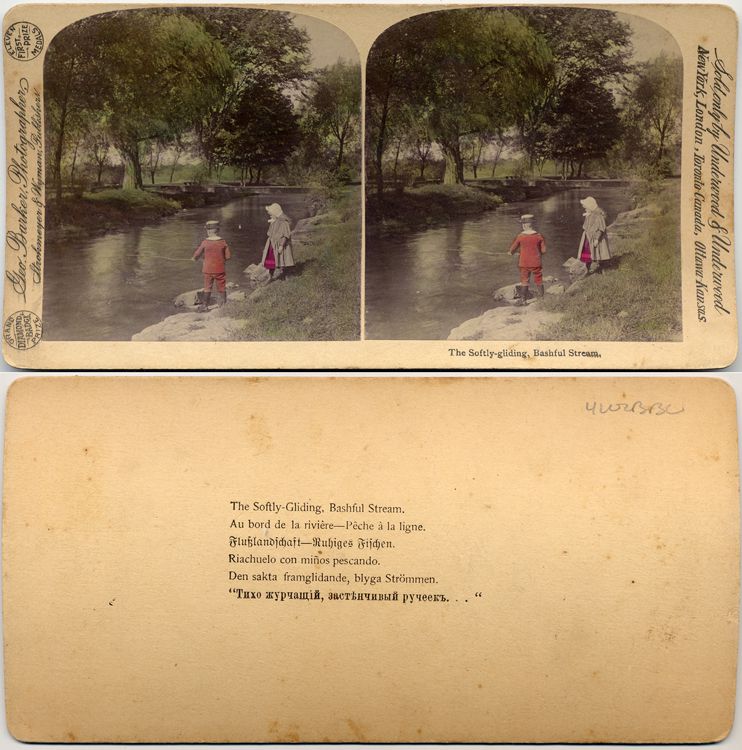 ELEVEN FIRST PRIZE MEDALS
Geo. Barker, Photographer,
Strohmeyer & Wyman, Publishers,
GRAND DIAMOND BADGE PRIZE
Sold only by Underwood & Underwood
New York, London, Toronto Canada, Ottawa Kansas.
The Softly-gliding, Bashful Stream.
The Softly-Gliding, Bashful Stream.
Au bord de la rivière—Pêche à la ligne.
Flußlandschaft—Ruhiges Fischen.
Riachuelo con miños pescando.
Den sakta framglidande, blyga Strömmen.
“Тихо журчащій, застѣнчивый ручеекъ. . . “